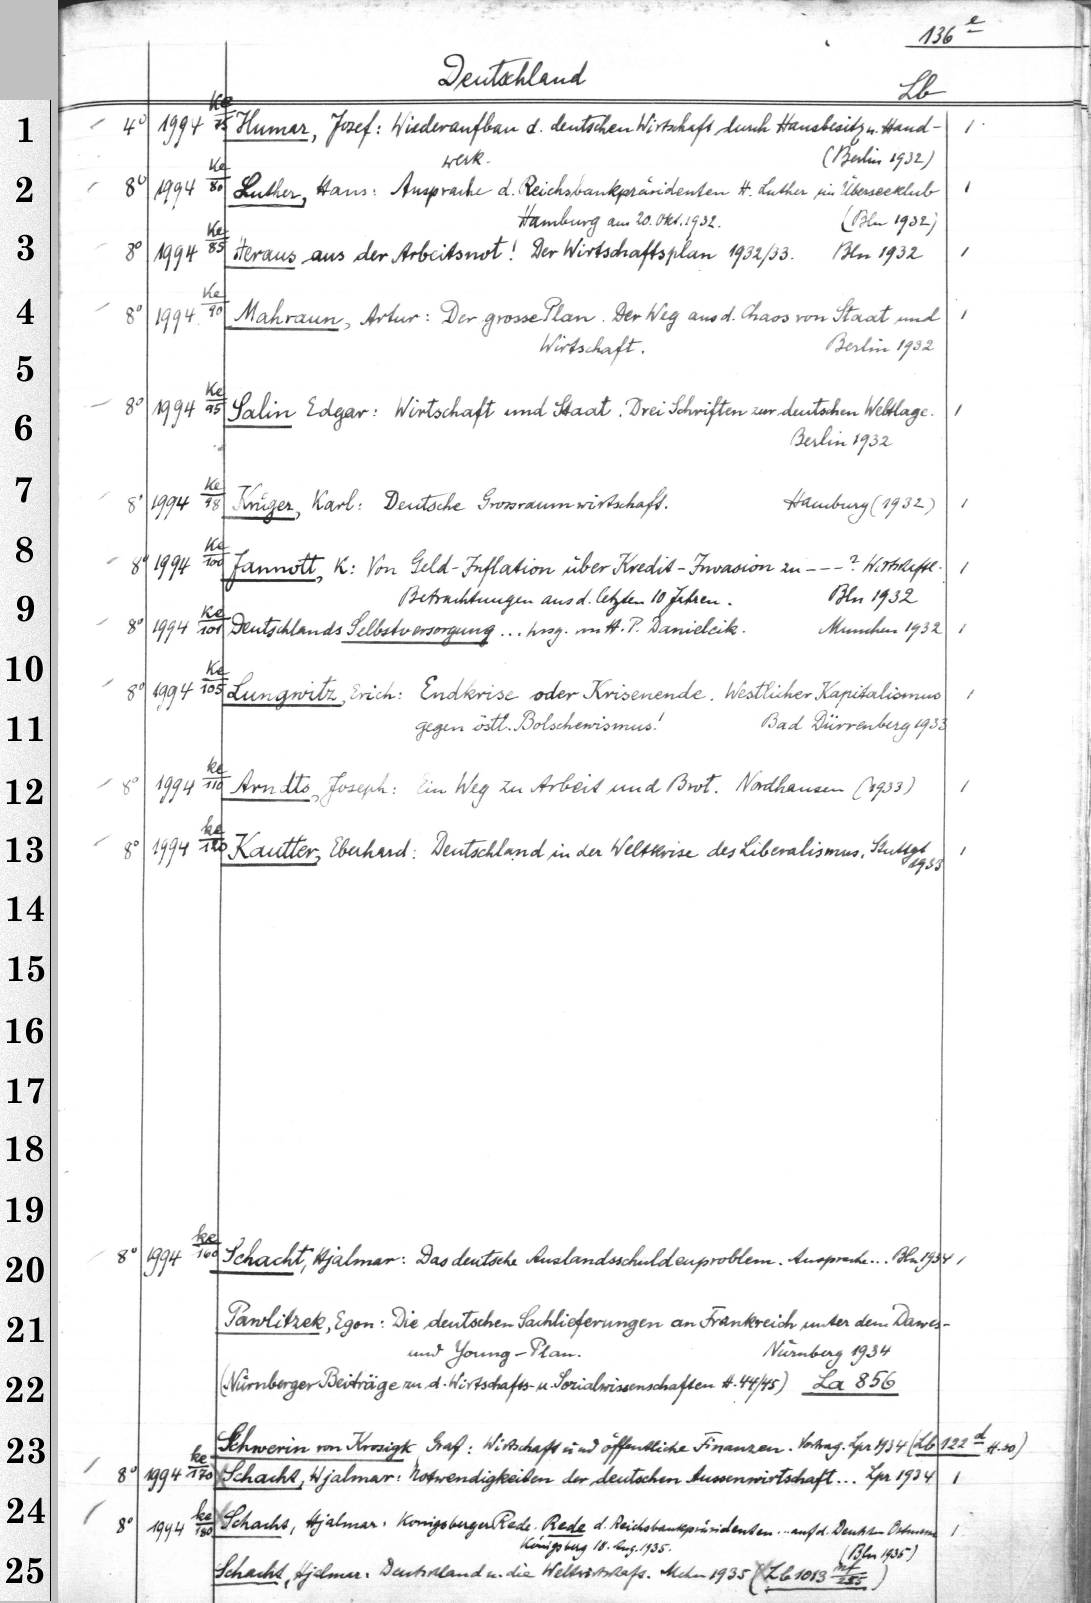 136 e
Deutschland Lb
1 4° 1994 Ke/75 Humar, Jozef: Wiederaufbau d. deutschen Wirtschaft durch Hausbesitz u. Hand- 1
werk. (Berlin 1932)
2 8° 1994 Ke/80 Luther, Hans: Ansprache d. Reichsbankpräsidenten H. Luther im Überseeklub 1
Hamburg am 20. Okt. 1932. (Bln 1932)
3 8° 1994 Ke/85 Heraus aus der Arbeitsnot! Der Wirtschaftsplan 1932/33. Bln 1932 1
4 8° 1994 Ke/90 Mahraun, Artur: Der grosse Plan. Der Weg aus d. Chaos von Staat und 1
Wirtschaft. Berlin 1932
5
6 8° 1994 Ke/95 Salin Edgar: Wirtschaft und Staat. Drei Schriften zur deutschen Weltlage. 1
Berlin 1932
7 8° 1994 Ke/98 Krüger, Karl: Deutsche Grossraumwirtschaft. Hamburg (1932) 1
8 8° 1994 Ke/100 Jannott, K: Von Geld-Inflation über Kredit-Invasion zu ---? Wirtschaftl. 1
9 Betrachtungen aus d. letzten 10 Jahren. Bln 1932
8° 1994 Ke/101 Deutschlands Selbstversorgung ... hrsg. von H. P. Danielcik. München 1932 1
10 8° 1994 Ke/105 Lungwitz, Erich: Endkrise oder Krisenende. Westlicher Kapitalismus 1
11 gegen östl. Bolschewismus! Bad Dürrenberg 1933
12 8° 1994 ke/110 Arndts, Joseph: Ein Weg zu Arbeit und Brot. Nordhausen (1933) 1
13 8° 1994 ke/120 Kautter, Eberhard: Deutschland in der Weltkrise des Liberalismus. Stuttgt 1
1933
14
15
16
17
18
19
20 8° 1994 ke/160 Schacht, Hjalmar: Das deutsche Auslandsschuldenproblem. Ansprache... Bln 1934 1
21 Pawlitzek, Egon: Die deutschen Sachlieferungen an Frankreich unter dem Dawes-
und Young-Plan. Nürnberg 1934
22 (Nürnberger Beiträge zu d. Wirtschafts- u. Sozialwissenschaften H. 44/45) La 856
23 Schwerin von Krosigk Graf: Wirtschaft und öffentliche Finanzen. Vortrag. Lpz 1934 (Lb 122 d H. 20)
8° 1994 ke/170 Schacht, Hjalmar: Notwendigkeiten der deutschen Aussenwirtschaft... Lpz 1934 1
24 8° 1994 ke/180 Schacht, Hjalmar. Königsberger Rede. Rede d. Reichsbankpräsidenten ... auf d. Deutsch. Ostmesse 1
Königsberg 18. Aug. 1935. (Bln 1935)
25 Schacht, Hjalmar: Deutschland u. die Weltwirtschaft. Mchn 1935 (Lb 1013)